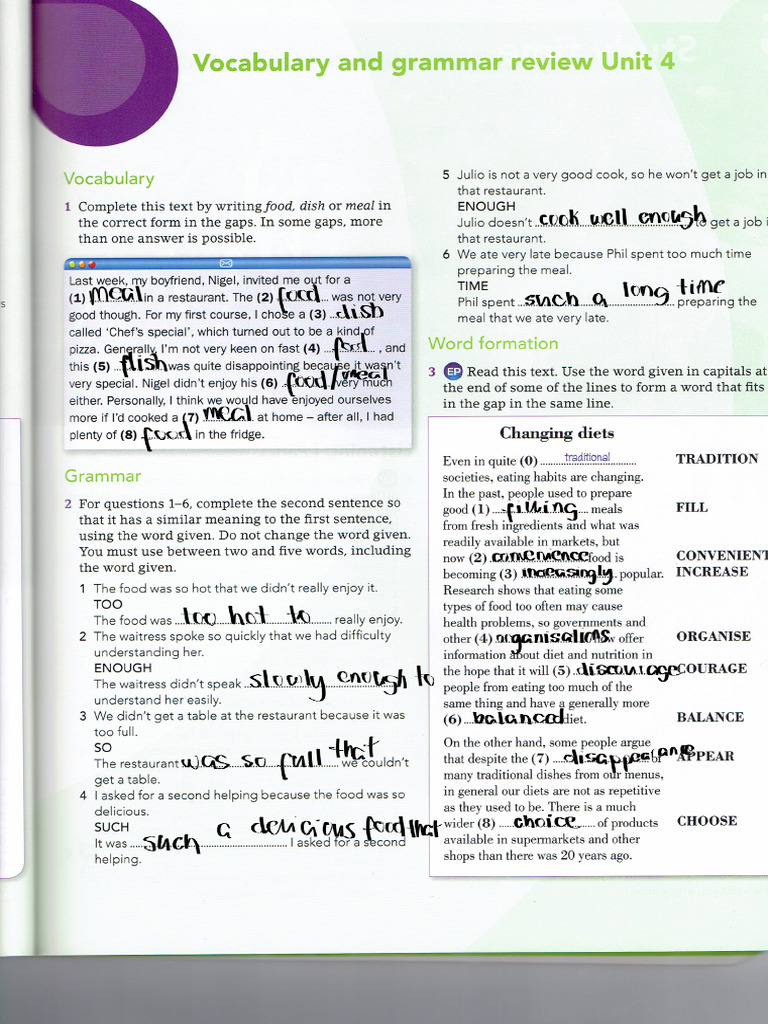 Vocabulary and grammar review Unit 4
Vocabulary
1 Complete this text by writing food, dish or meal in
the correct form in the gaps. In some gaps, more
than one answer is possible.
Last week, my boyfriend, Nigel, invited me out for a
(1) meal in a restaurant. The (2) food was not very
good though. For my first course, I chose a (3) dish
called 'Chef's special', which turned out to be a kind of
pizza. Generally, I'm not very keen on fast (4) food, and
this (5) dish was quite disappointing because it wasn't
very special. Nigel didn't enjoy his (6) food/meal very much
either. Personally, I think we would have enjoyed ourselves
more if I'd cooked a (7) meal at home – after all, I had
plenty of (8) food in the fridge.
Grammar
2 For questions 1–6, complete the second sentence so
that it has a similar meaning to the first sentence,
using the word given. Do not change the word given.
You must use between two and five words, including
the word given.
1 The food was so hot that we didn't really enjoy it.
TOO
The food was too hot to really enjoy.
2 The waitress spoke so quickly that we had difficulty
understanding her.
ENOUGH
The waitress didn't speak slowly enough to
understand her easily.
3 We didn't get a table at the restaurant because it was
too full.
SO
The restaurant was so full that we couldn't
get a table.
4 I asked for a second helping because the food was so
delicious.
SUCH
It was such a delicious food that I asked for a second
helping.
5 Julio is not a very good cook, so he won't get a job in
that restaurant.
ENOUGH
Julio doesn't cook well enough to get a job i
that restaurant.
6 We ate very late because Phil spent too much time
preparing the meal.
TIME
Phil spent such a long time preparing the
meal that we ate very late.
Word formation
3 EP Read this text. Use the word given in capitals at
the end of some of the lines to form a word that fits
in the gap in the same line.
Changing diets
Even in quite (0) traditional TRADITION
societies, eating habits are changing.
In the past, people used to prepare
good (1) filling meals FILL
from fresh ingredients and what was
readily available in markets, but
now (2) convenience food is CONVENIENT
becoming (3) increasingly popular. INCREASE
Research shows that eating some
types of food too often may cause
health problems, so governments and
other (4) organisations now offer ORGANISE
information about diet and nutrition in
the hope that it will (5) discourage COURAGE
people from eating too much of the
same thing and have a generally more
(6) balanced diet. BALANCE
On the other hand, some people argue
that despite the (7) disappearance of APPEAR
many traditional dishes from our menus,
in general our diets are not as repetitive
as they used to be. There is a much
wider (8) choice of products CHOOSE
available in supermarkets and other
shops than there was 20 years ago.